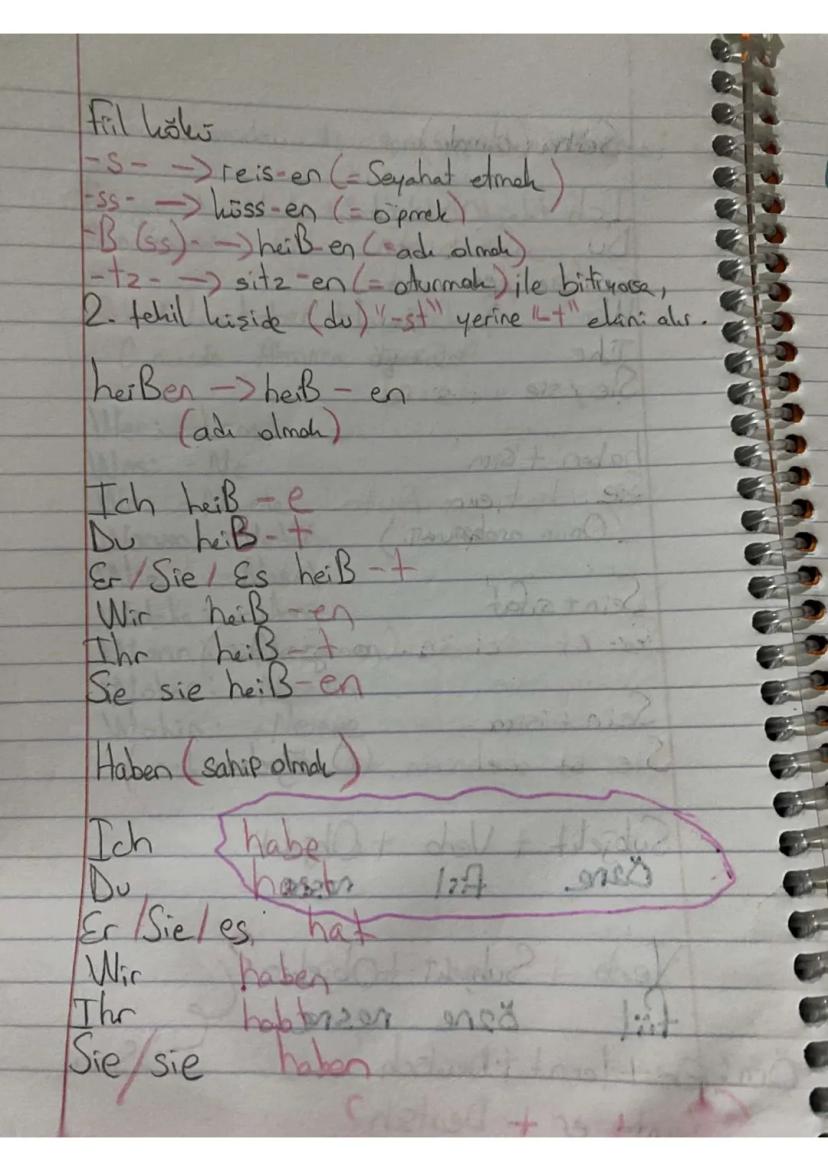 Fiil kökü
-s- → reis-en (= Seyahat etmek)
-ss- → küss-en (= öpmek)
-ß (ss)- → heiß-en (= adı olmak)
-tz- → sitz-en (= oturmak) ile bitiyorsa,
2. tekil kişide (du) "-st" yerine "-t" ekini alır.
heißen → heiß - en
(adı olmak)
Ich heiß - e
Du heiß - t
Er / Sie / Es heiß - t
Wir heiß - en
Ihr heiß - t
Sie sie heiß - en
Haben (sahip olmak)
Ich habe
Du hast
Er / Sie / es hat
Wir haben
Ihr habt
Sie / sie haben